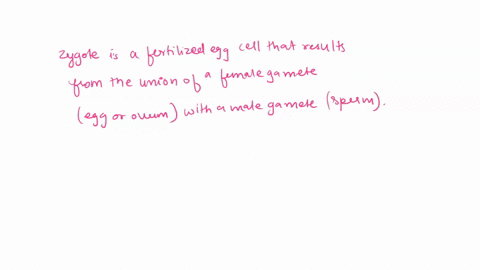 zygote is a fertilized egg cell that results
from the union of a female gamete
(egg or ovum) with a male gamete (sperm).